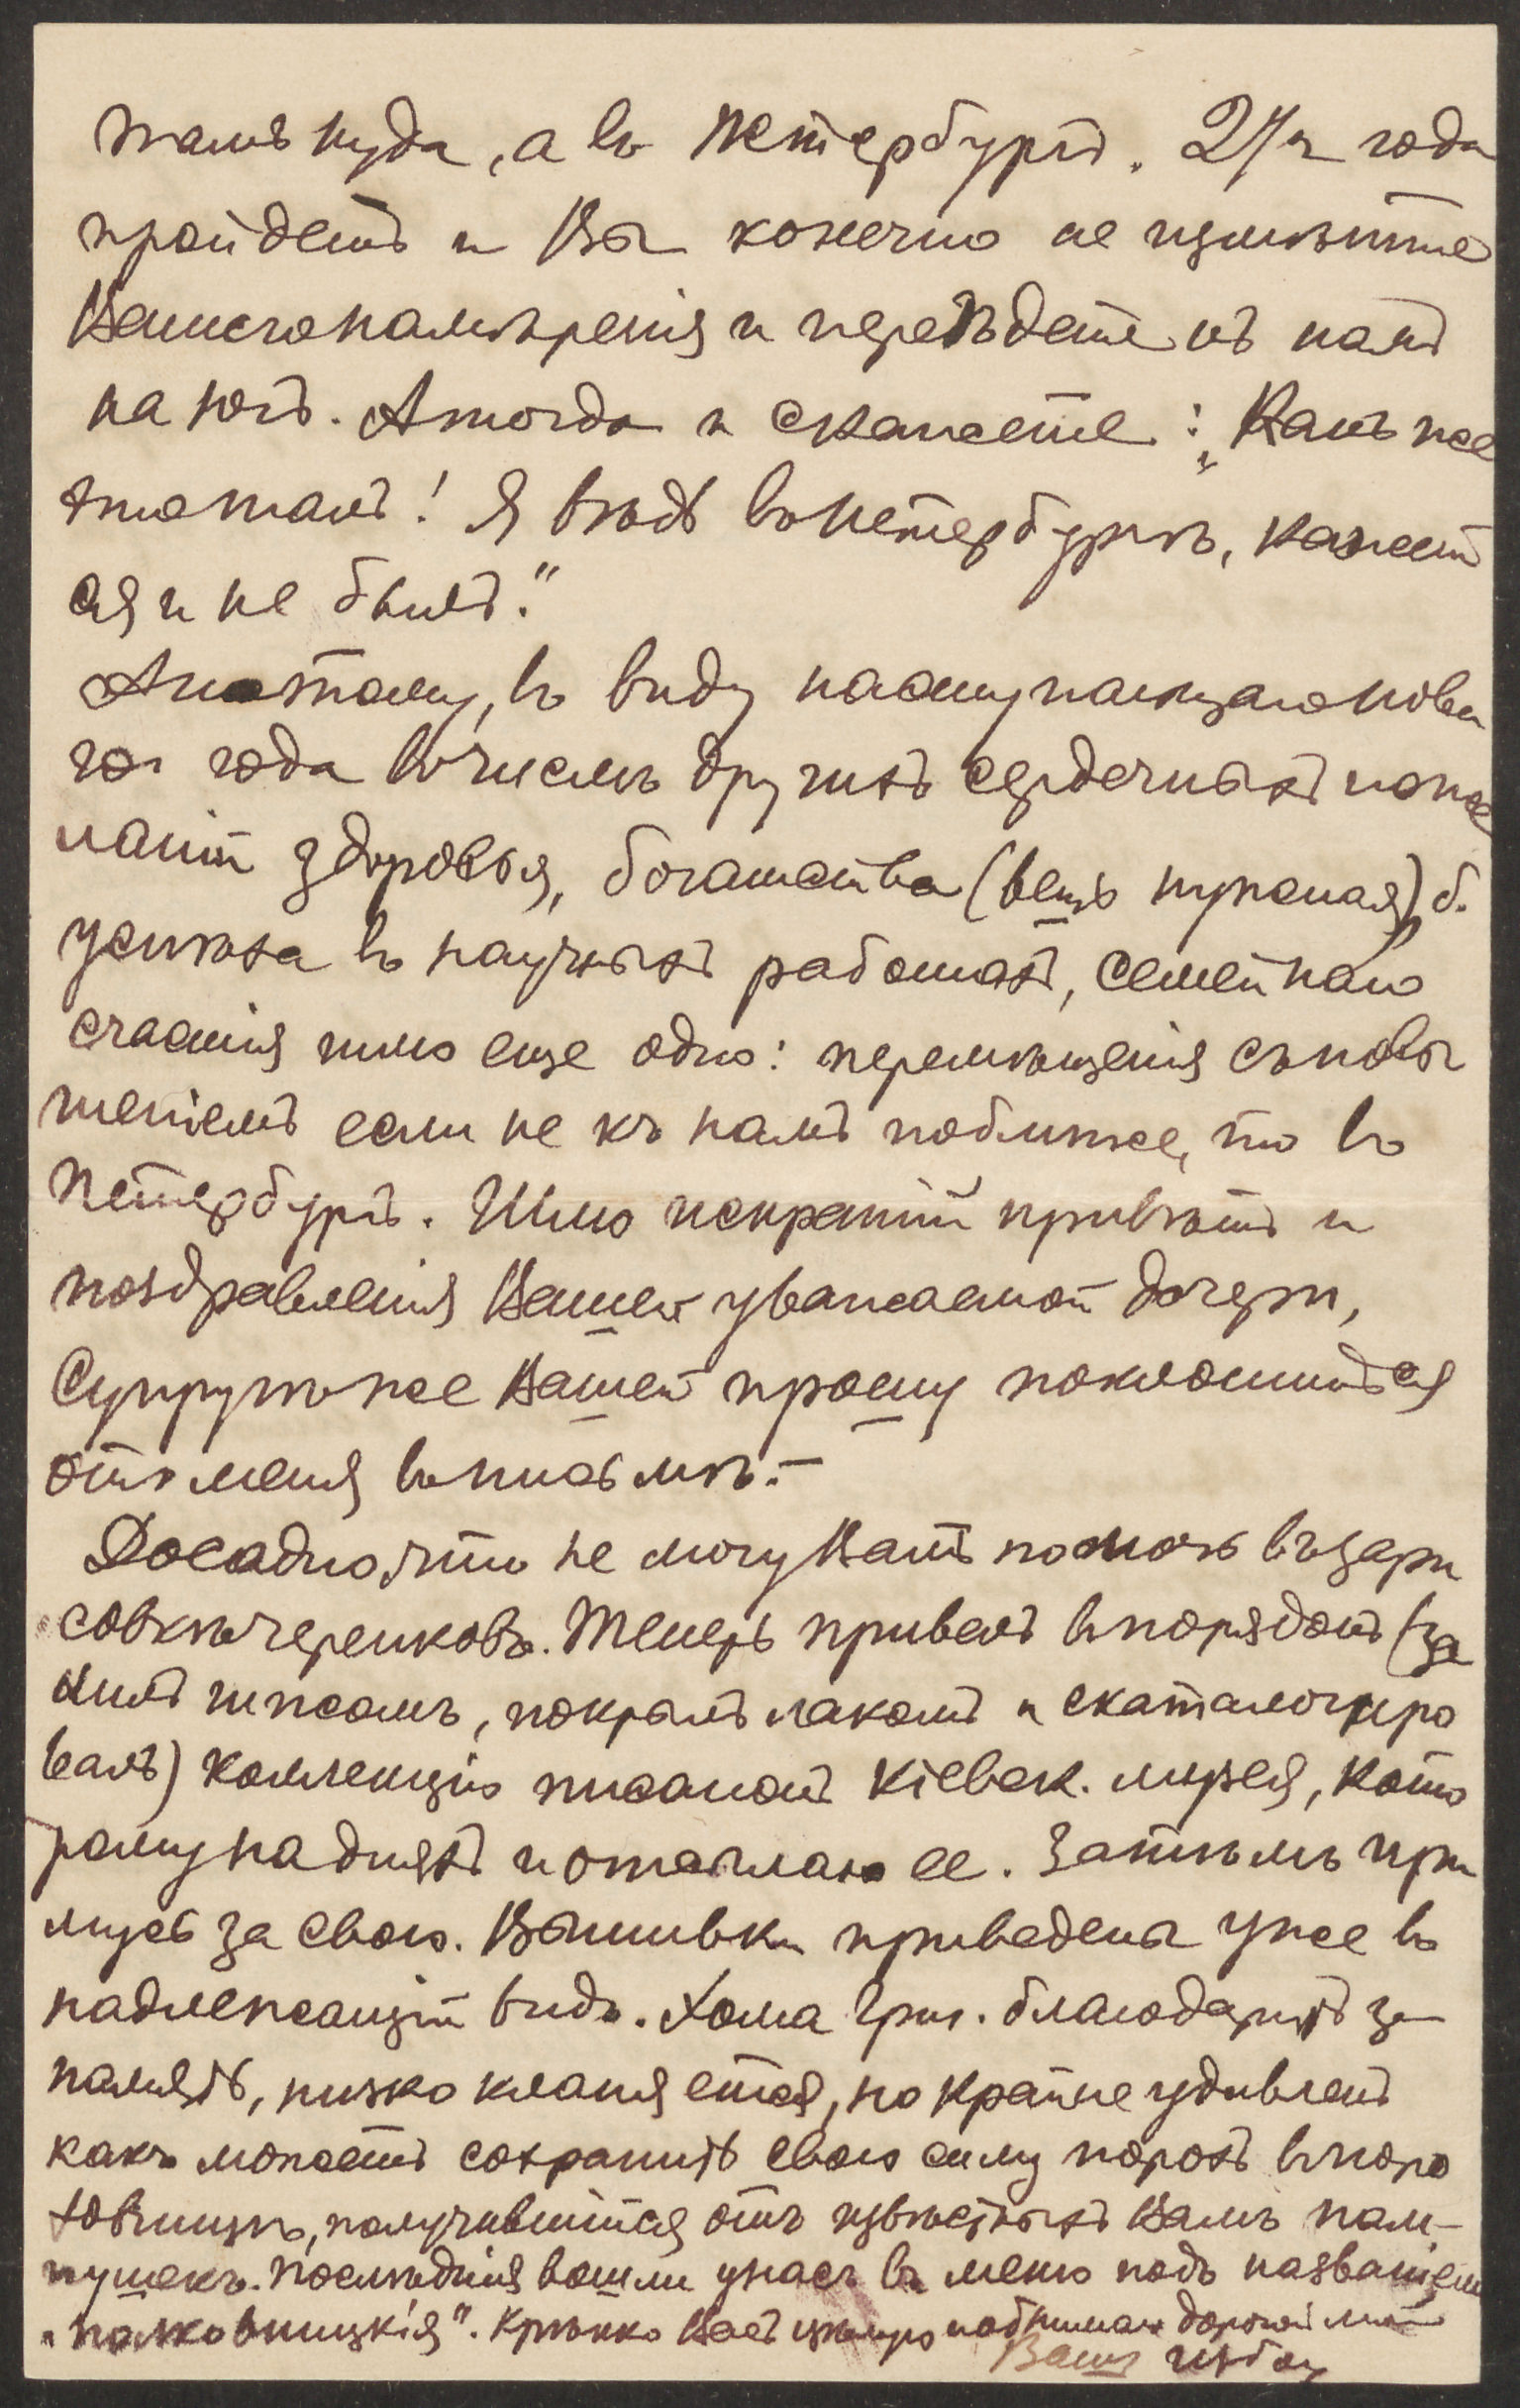 тамъ куда, а въ Петербургѣ. 2 1/2 года
пройдетъ и Вы конечно не измѣните
Вашего намѣренія и переѣдете къ намъ
на югъ. А тогда и скажете: „Какъ же
это такъ! Я вѣдь въ Петербургѣ, кажет
ся и не былъ."
А потому, въ виду наступающаго нова
го года въ числѣ другихъ сердечныхъ поже
ланій здоровья, богатства (вещь нужная) б.
успѣха въ научныхъ работахъ, семейнаго
счастія шлю еще одно: перемѣщенія съ повы
шеніемъ если не къ намъ поближе, то въ
Петербургъ. Шлю искреній привѣтъ и
поздравленія Вашей уважаемой дочери,
Супругѣ же Вашей прошу поклониться
отъ меня въ письмѣ.–
Досадно, что не могу Вамъ помочь въ зари
совкѣ черепковъ. Теперь привелъ въ порядокъ (за
лилъ гипсомъ, покрылъ лакомъ и скаталогиро
валъ) коллекцію писанокъ Кіевск. музея, кото
рому на дняхъ и отсылаю ее. Затѣмъ при
мусь за свою. Вышивки приведены уже въ
надлежащій видъ. Хома Григ. благодаритъ за
память, низко кланяется, но крайне удивленъ
какъ можетъ сохранить свою силу порохъ въ поро
ховницѣ, получившійся отъ извѣстныхъ Вамъ пам-
пушекъ. Послѣднія вошли у насъ въ меню подъ названіем
„полковницкія". Крѣпко Васъ цѣлую и обнимаю дорогой мой
Вашъ